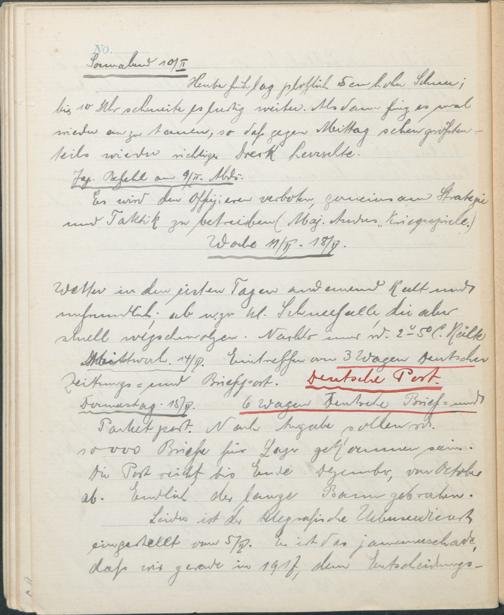 No.
Sonnabend 10/II
Heute früh lag plötzlich 5 cm hoher Schnee;
bis 10 Uhr schneite es weiter. Alsdann fing es mal
wieder an zu tauen, so daß gegen Mittag schon größten-
teils wieder richtiger Dreck herrschte.
Jap. Befehl am 9/II. Abds.
Es wird den Offizieren verboten, gemeinsam Strategie
und Taktik zu betreiben (Maj. Anders „Kriegsspiele".)
Woche 11/II - 18/II.
Wetter in den ersten Tagen andauernd kalt und
unfreundlich. ab u. zu kl. Schneefälle die aber
schnell wegschmolzen. Nachts 2-5° C. Kälte
Mittwoch 14/II. Eintreffen von 3 Wagen Deutscher
Zeitungs- und Briefpost. Deutsche Post.
Donnerstag 15/II. 6 Wagen Deutsche Brief- und
Paketpost. Nach Angabe sollen
10000 Briefe für Lager gekommen sein.
Die Post reicht bis Ende Dezember, von Oktober
ab. Endlich der lange Bann gebrochen.
Leider ist der telegrafische Überseedienst
eingestellt vom 5/II. Es ist das jammerschade,
daß wir gerade in 1917, dem Entscheidungs-